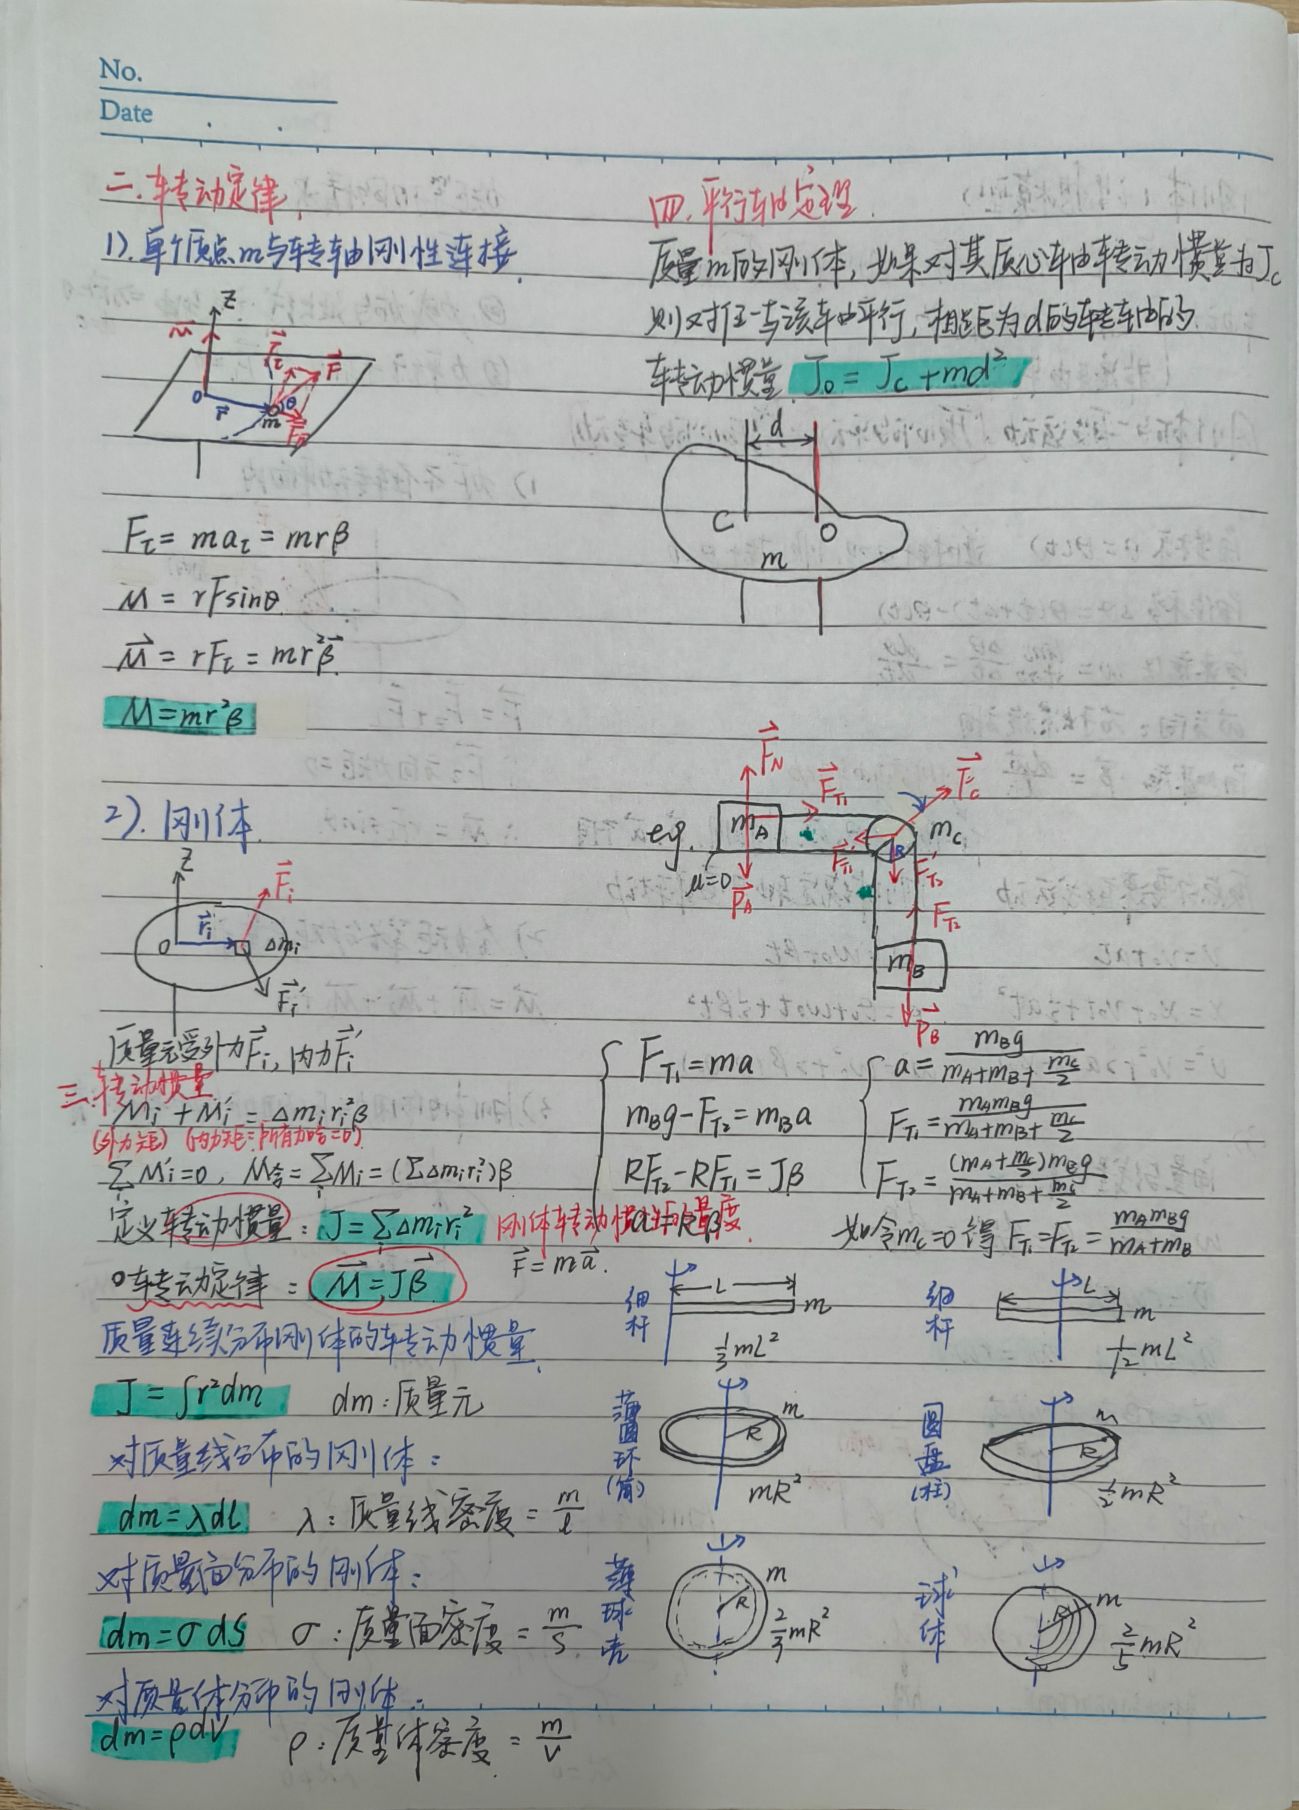 No.
Date
二.转动定律.
1).单个质点m与转轴刚性连接.
Z
M
F_τ
F
O
r
m
θ
F_n
F_τ = ma_τ = mrβ
M = rFsinθ.
M⃗ = rF_τ = mr²β⃗.
M=mr²β
2).刚体.
Z
F⃗_i
O
r⃗_i
Δm_i
F⃗_i'
质量元受外力F⃗_i,内力F⃗_i'
三.转动惯量
M_i + M_i' = Δm_i r_i²β
(外力矩) (内力矩:所有加和=0)
∑M_i'=0, M合=∑M_i=(∑Δm_i r_i²)β
定义转动惯量: J=∑Δm_i r_i² 刚体转动惯性的量度.
转动定律: M⃗=Jβ⃗ F⃗=ma⃗.
质量连续分布刚体的转动惯量.
J=∫r²dm dm:质量元
对质量线分布的刚体:
dm=λdl λ:质量线密度=m/l
对质量面分布的刚体:
dm=σdS σ:质量面密度=m/S
对质量体分布的刚体:
dm=ρdV ρ:质量体密度=m/V
四.平行轴定理.
质量m的刚体,如果对其质心轴转动惯量为J_c
则对任一与该轴平行,相距为d的转轴的
转动惯量 J_O = J_C + md²
d
C
O
m
eg.
F⃗_N
m_A
μ=0
P⃗_A
F⃗_T1
F⃗_C
m_C
F⃗_T1'
R
F⃗_T2'
F_T2
m_B
P⃗_B
F_T1=ma
m_Bg-F_T2=m_Ba
RF_T2-RF_T1=Jβ
a=Rβ
a=m_Bg/(m_A+m_B+m_C/2)
F_T1=m_Am_Bg/(m_A+m_B+m_C/2)
F_T2=(m_A+m_C/2)m_Bg/(m_A+m_B+m_C/2)
如令m_C=0得F_T1=F_T2=m_Am_Bg/(m_A+m_B)
细杆
L
m
1/3 mL²
细杆
L
m
1/12 mL²
薄圆环(筒)
m
R
mR²
圆盘(柱)
m
R
1/2 mR²
薄球壳
m
R
2/3 mR²
球体
m
R
2/5 mR²